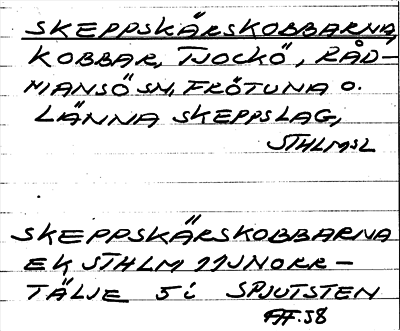 SKEPPSKÄRSKOBBARNA,
KOBBAR, TJOCKÖ, RÅD-
MANSÖ SN, FRÖTUNA O.
LÄNNA SKEPPSLAG,
STHLMSL
SKEPPSKÄRSKOBBARNA
EK STHLM 11J NORR-
TÄLJE 5 i SPJUTSTEN
AF.58